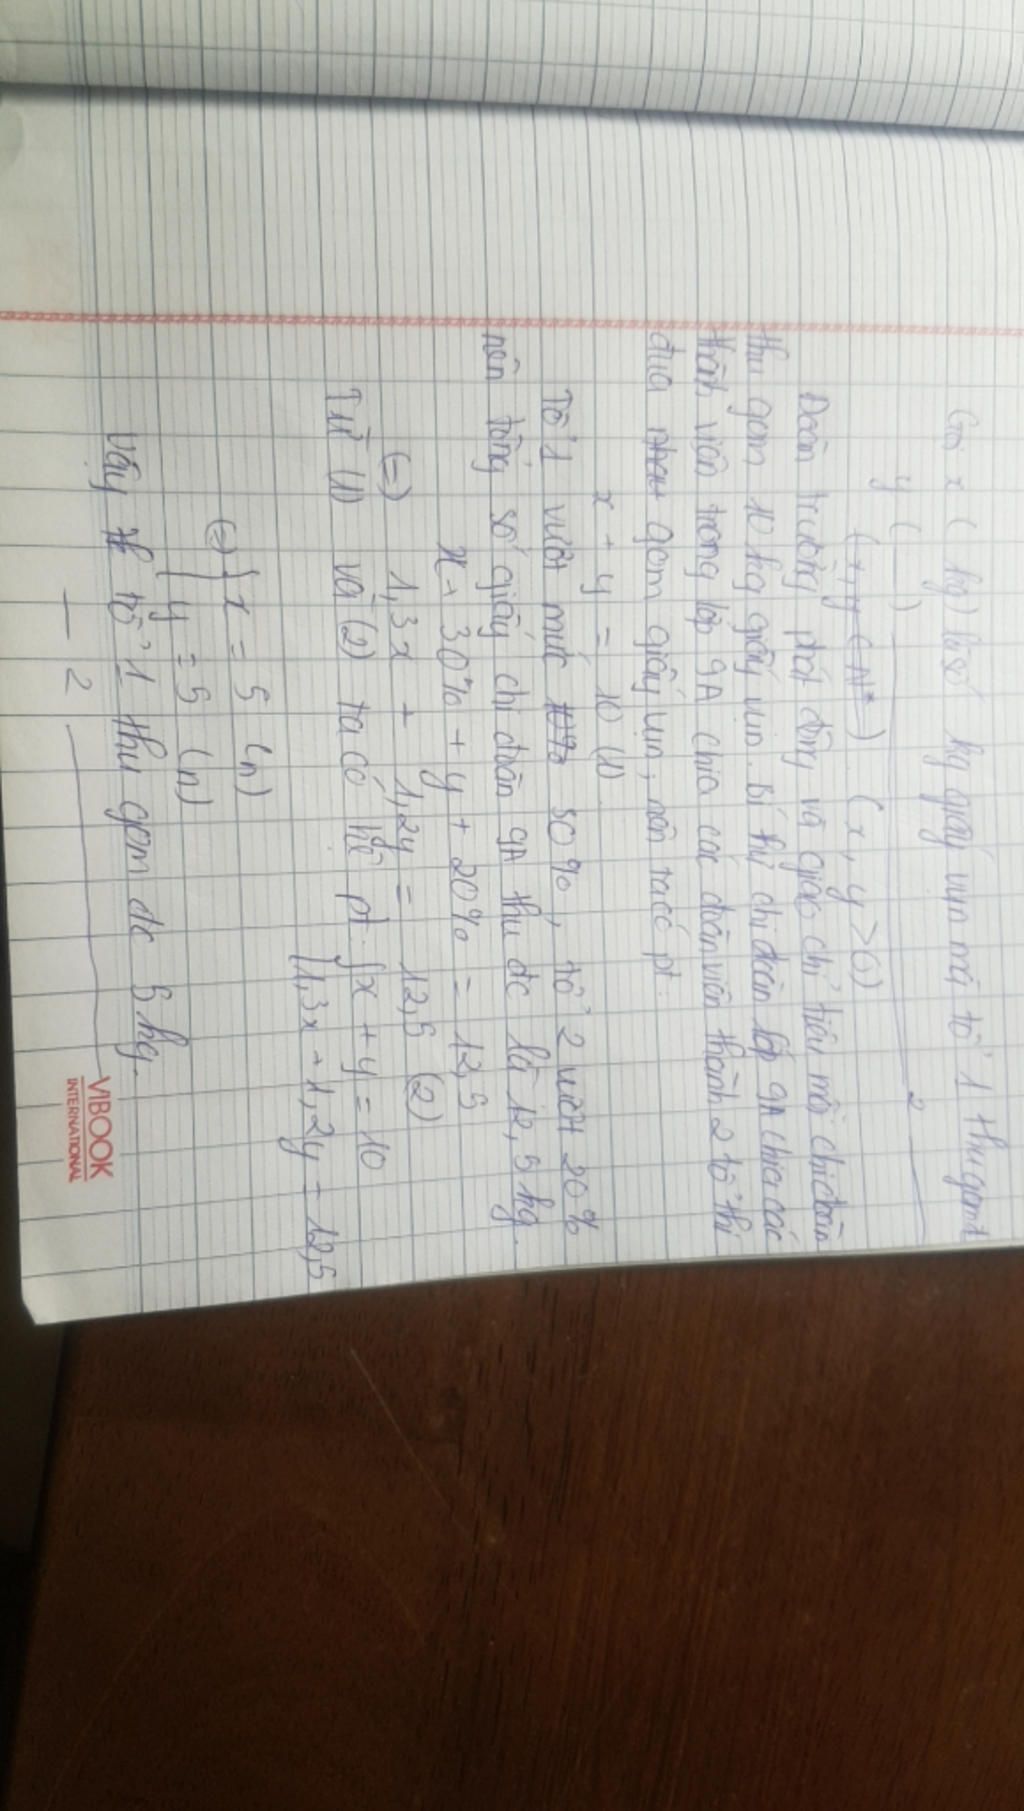 Gọi x (kg) là số kg giấy vụn mà tổ 1 thu gom đ
y (____)____________________2____
(x, y ∈ N*) (x, y > 0)
Đoàn trường phát động và giao chỉ tiêu mỗi chi đoàn
thu gom 10 kg giấy vụn. Bí thư chi đoàn lớp 9A chia các
thành viên trong lớp 9A chia các đoàn viên thành 2 tổ thi
đua nhau gom giấy vụn, nên ta có pt:
x + y = 10 (1)
Tổ 1 vượt mức 10% 30%, tổ 2 vượt 20%
nên tổng số giấy chi đoàn 9A thu đc là 12,5 kg.
x + 30% + y + 20% = 12,5
(=) 1,3x + 1,2y = 12,5 (2)
Từ (1) và (2) ta có hệ pt: { x + y = 10
{ 1,3x + 1,2y = 12,5
(=) { x = 5 (n)
{ y = 5 (n)
Vậy tổ 1 thu gom đc 5 kg.
— 2 ————
VIBOOK
INTERNATIONAL